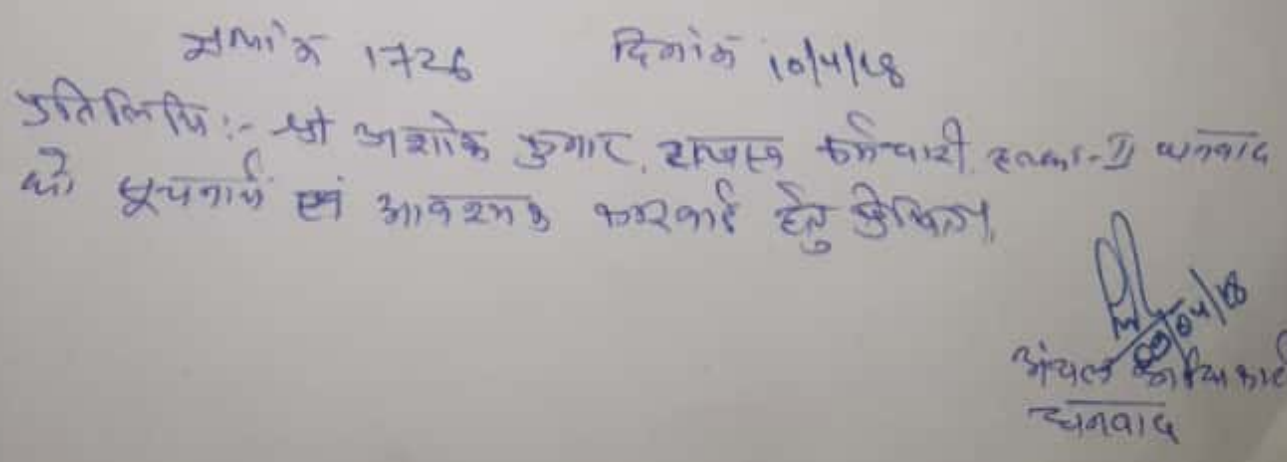 ज्ञापांक 1726 दिनांक 10/4/18
प्रतिलिपि :- श्री अशोक कुमार, राजस्व कर्मचारी, हल्का-II धनबाद
को सूचनार्थ एवं आवश्यक कारवाई हेतु प्रेषित।
04/18
अंचल अधिकारी
धनबाद